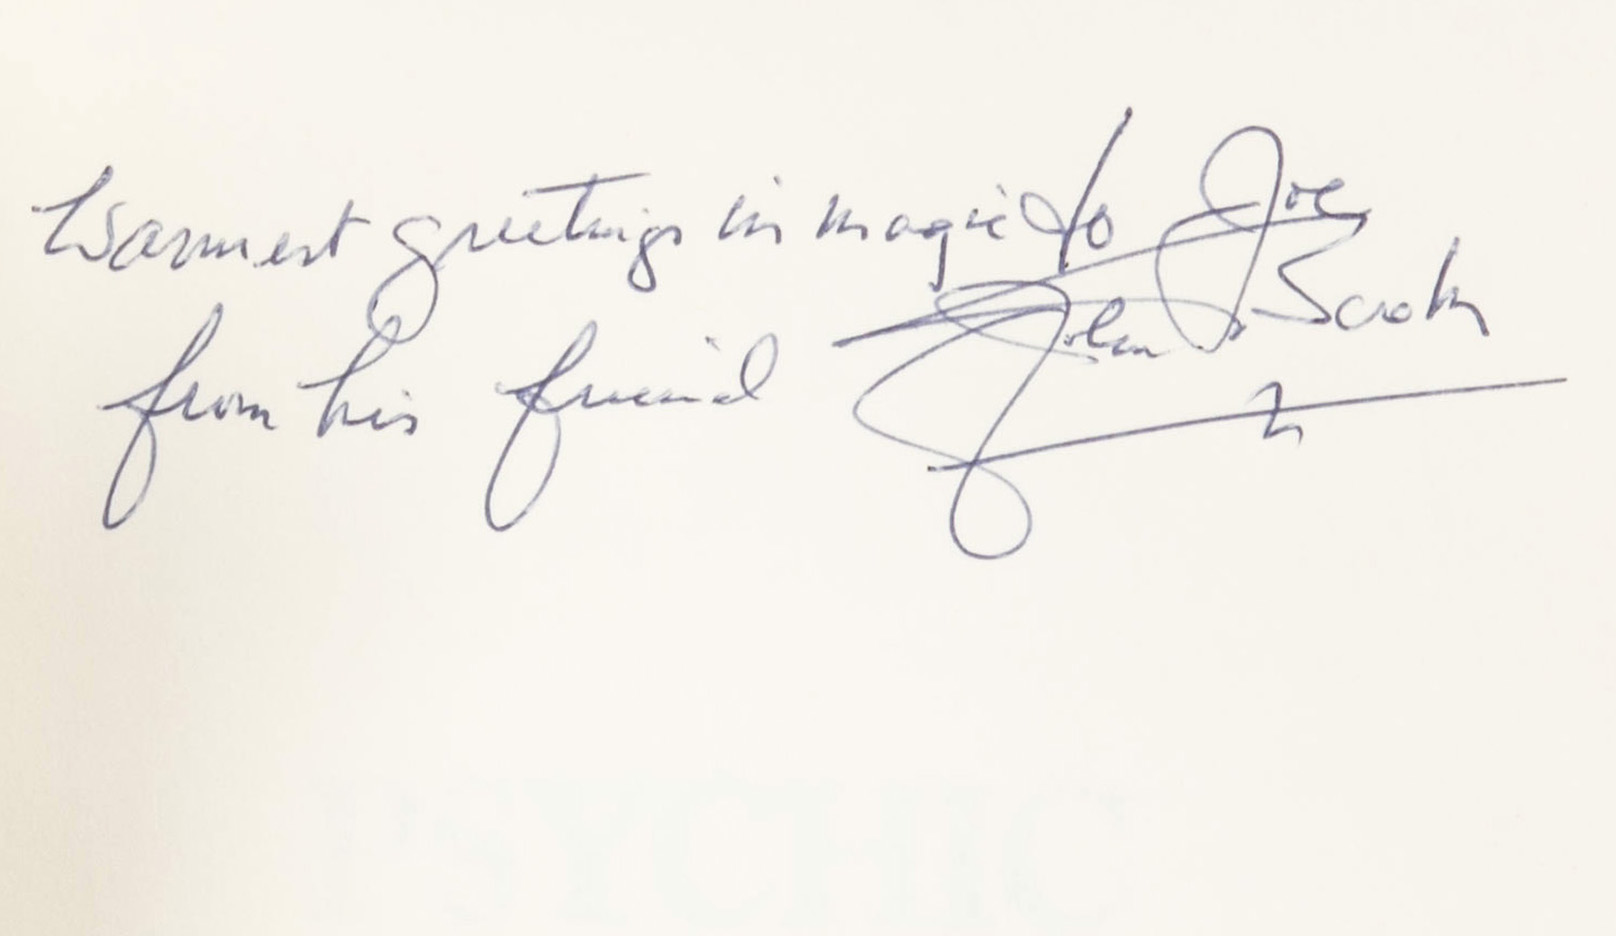 Warmest greetings in magic to Joe
from his friend John Booth
PSYCHIC